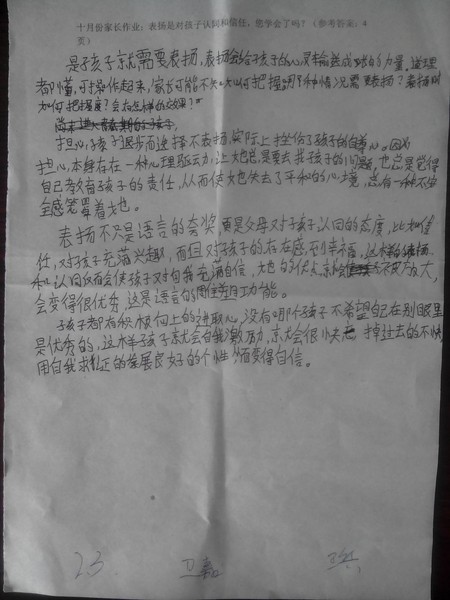 十月份家长作业：表扬是对孩子认同和信任，您学会了吗？（参考答案：4
页）
是孩子就需要表扬，表扬会给孩子的心灵输送成球的力量，道理
都懂，可操作起来，家长可能不知如何把握哪种情况需要表扬？表扬时
如何把握度？会有怎样的效果？
担心孩子退步而选择不表扬，实际上挫伤了孩子的自尊心。因为
担心，本身存在一种心理驱动力，让她总是要去找孩子的问题，也总是觉得
自己教育孩子的责任，从而使她也失去了平和的心境，总有一种不安
全感笼罩着她。
表扬不只是语言的夸奖，更是父母对孩子认同的态度，比如信
任，对孩子充满兴趣，而但对孩子的存在感到幸福，这样的表扬
和认同反而会使孩子对自我充满自信，她的优点就会被放大，
会变得很优秀，这是语言的功能。
孩子都有积极向上的进取心，没有哪个孩子不希望自己在别眼里
是优秀的，这样孩子就会自我激励，就会很快忘掉过去的不快
用自我求正的发展良好的个性，变得自信。
23
卫